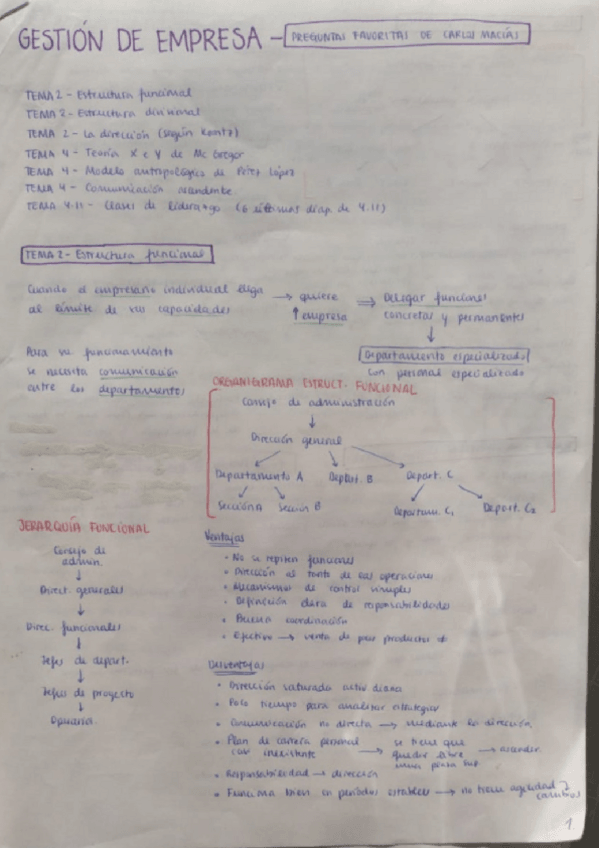 GESTIÓN DE EMPRESA - PREGUNTAS FAVORITAS DE CARLOS MACÍAS
TEMA 2 - Estructura funcional
TEMA 2 - Estructura divisional
TEMA 2 - La dirección (según Koontz)
TEMA 4 - Teoría X e Y de Mc Gregor
TEMA 4 - Modelo antropológico de Pérez López
TEMA 4 - Comunicación ascendente
TEMA 4.11 - Clases de liderazgo (6 últimas diap de 4.11)
TEMA 2 - Estructura funcional
Cuando el empresario individual llega → quiere ⇒ Delegar funciones
al límite de sus capacidades ↑ empresa concretas y permanentes
↓
Departamento especializado
con personal especializado
Para su funcionamiento
se necesita comunicación
entre los departamentos
ORGANIGRAMA ESTRUCT. FUNCIONAL
Consejo de administración
↓
Dirección general
Departamento A Depart. B Depart. C
Sección A Sección B Departam. C₁ Depart. C₂
JERARQUÍA FUNCIONAL
Consejo de
admin.
↓
Direct. generales
↓
Direc. funcionales
↓
Jefes de depart.
↓
Jefes de proyecto
↓
Operarios
Ventajas
• No se repiten funciones
• Dirección al tanto de las operaciones
• Mecanismos de control simples
• Definición clara de responsabilidades
• Buena coordinación
• Efectivo → venta de pocos productos
Desventajas
• Dirección saturada activ diaria
• Poco tiempo para analizar estrategias
• Comunicación no directa → mediante la dirección
• Plan de carrera personal → se tiene que → ascender
casi inexistente quedar libre
una plaza
• Responsabilidad → dirección
• Funciona bien en periodos estables → no tiene agilidad
cambios
1